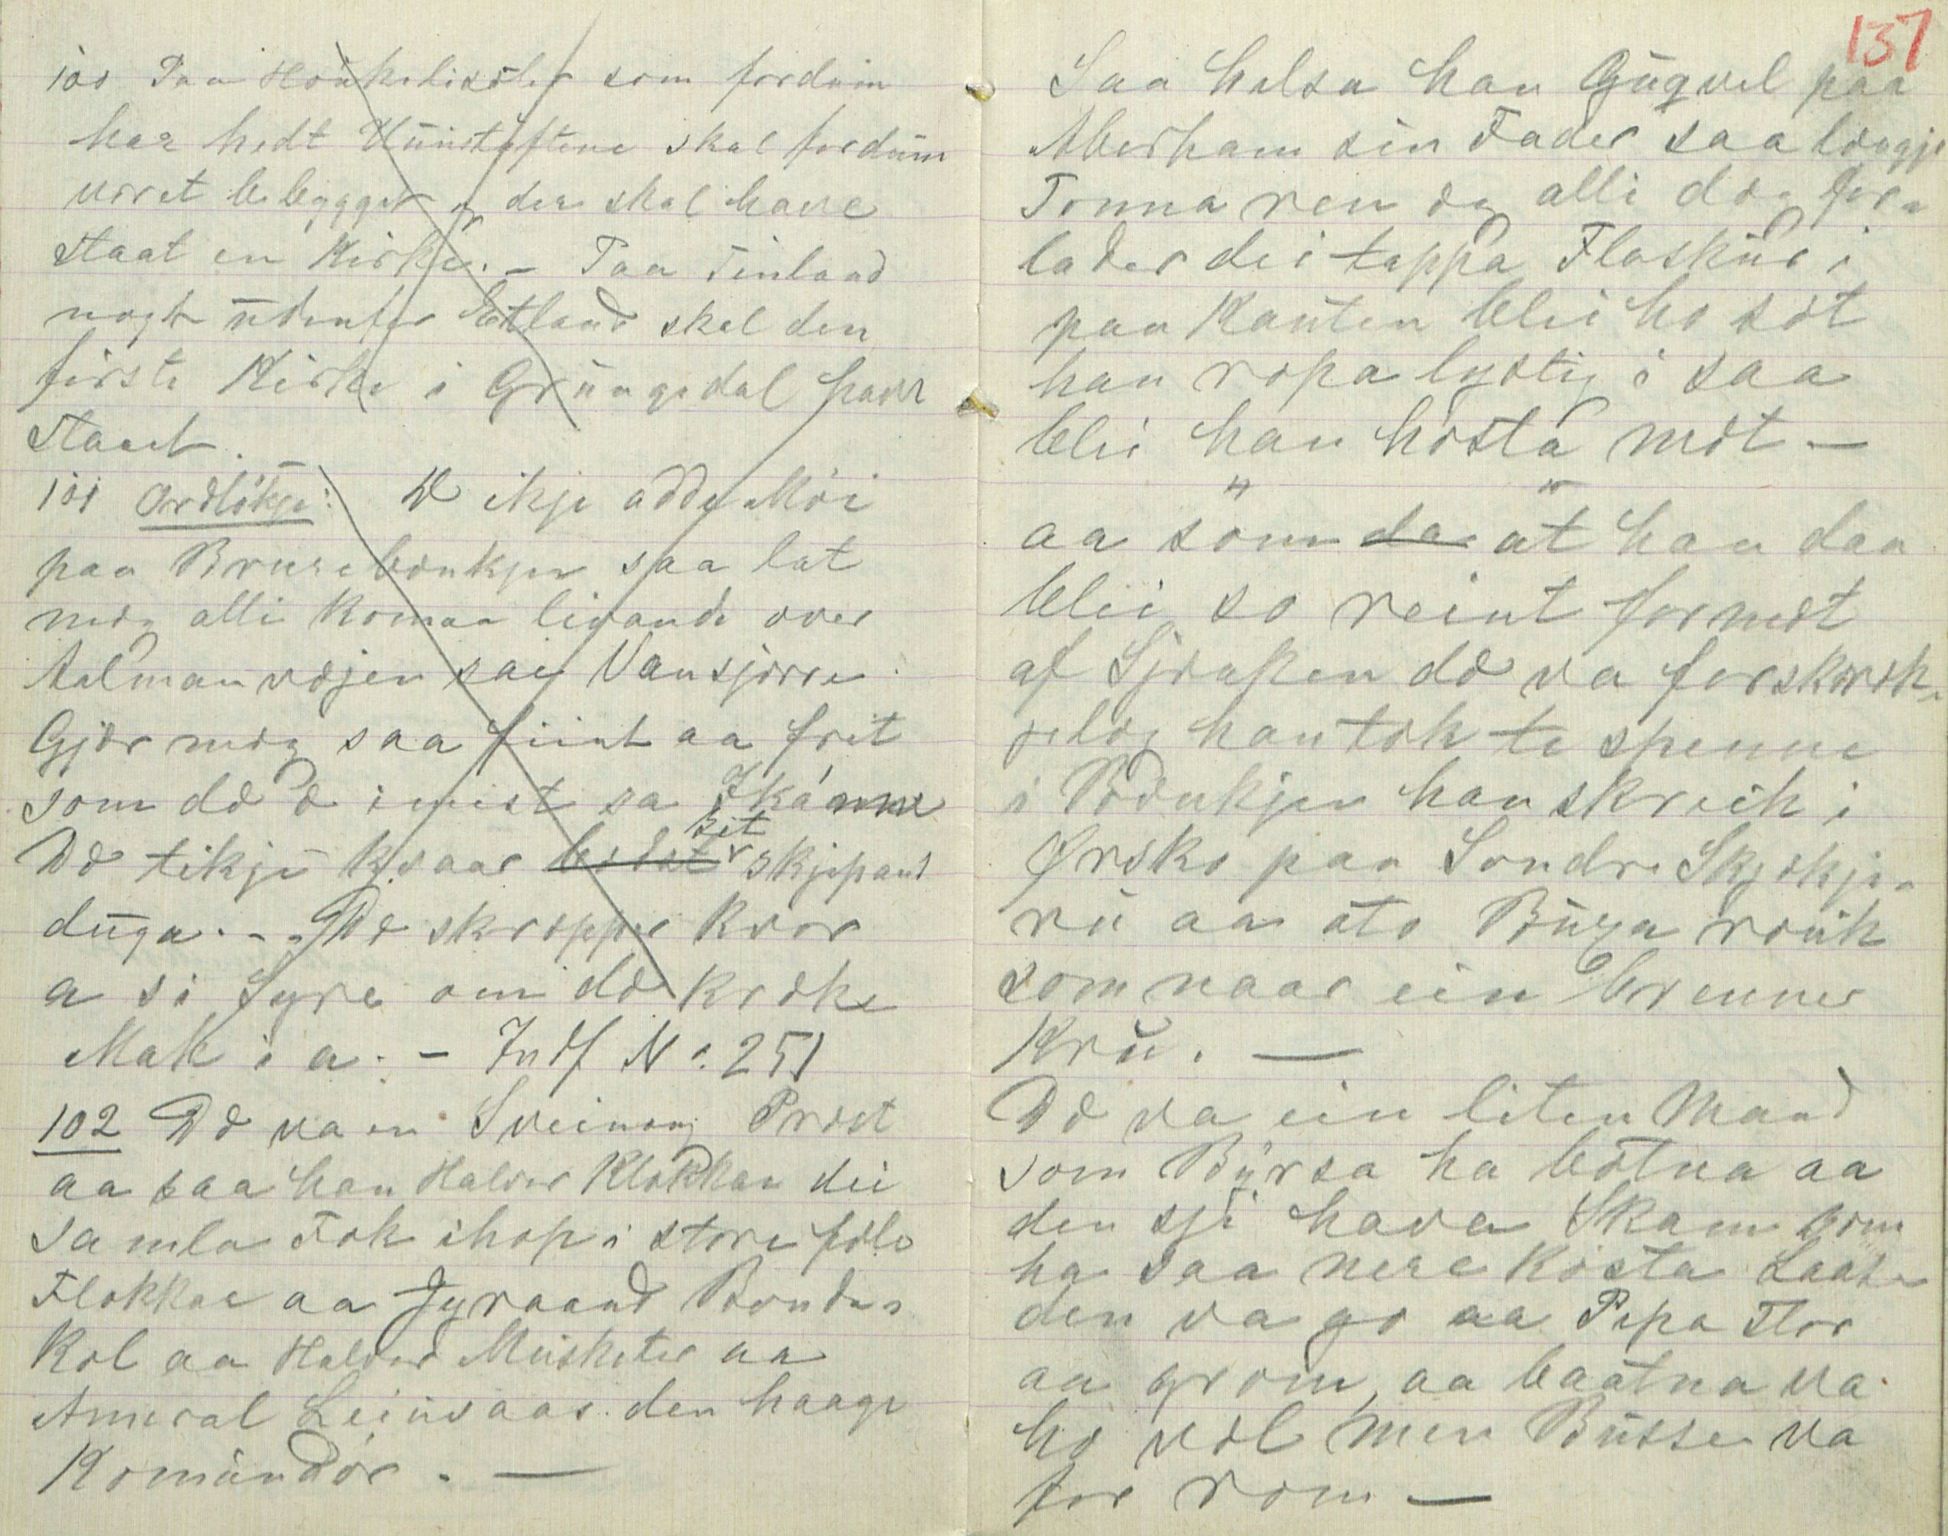 100 Paa Houkelisæter som fordum
har hedt Kunstuftene skal fordum
været bebygget og der skal have
staat en Kirke. – Paa Finland
nogle udenfor Edland skal den
første Kirke i Grungedal havr
staaet.
101 Ordlökje: D ikje adde Möi
paa Brurebænkjen saa lat
mæg alli koma livande over
Aalmanvæjen sae Vansjorre
Gjær mæg saa fiint aa frit
som dæ æ i mist sa
Dæ tikje kvaar sit skjepand
duga. – De skrepper kvor
a si Syre om dæ kræke
Mak i a. – Indf No. 251
102 Dæ va en Sveinong Præst
aa saa han Halvor Klokkar dei
samla Fok ihop i store fæle
Flokkar aa Jyraand Bonde
Kol aa Halvor Musketer aa
Ameral Leinvaas den haage
Komandör. –
137
Saa helsa han Gugvel paa
Aberham sin Fader saa længje
Tonna ren og alli dæg for
lader dei tappa Flaskur i
paa Kanten blei ho söt
han ropa lystig i saa
blei han hosta möt –
aa som da at han daa
blii so reint formöt
af Sjauken dæ va forskræk
jelæg han tok te spenne
i Bænkjen han skreik i
Ørsko paa Sondre Skjekje
ru aa ato Buxa rouk
som naar ein brenner
Kru. –
Dæ va ein liten Mand
som Byrsa ha bötna aa
den sji hava Skam som
ha saa mere kosta Laase
den va go aa Pipa stor
aa grom, aa baatna va
ho væl men Busse va
for rom –